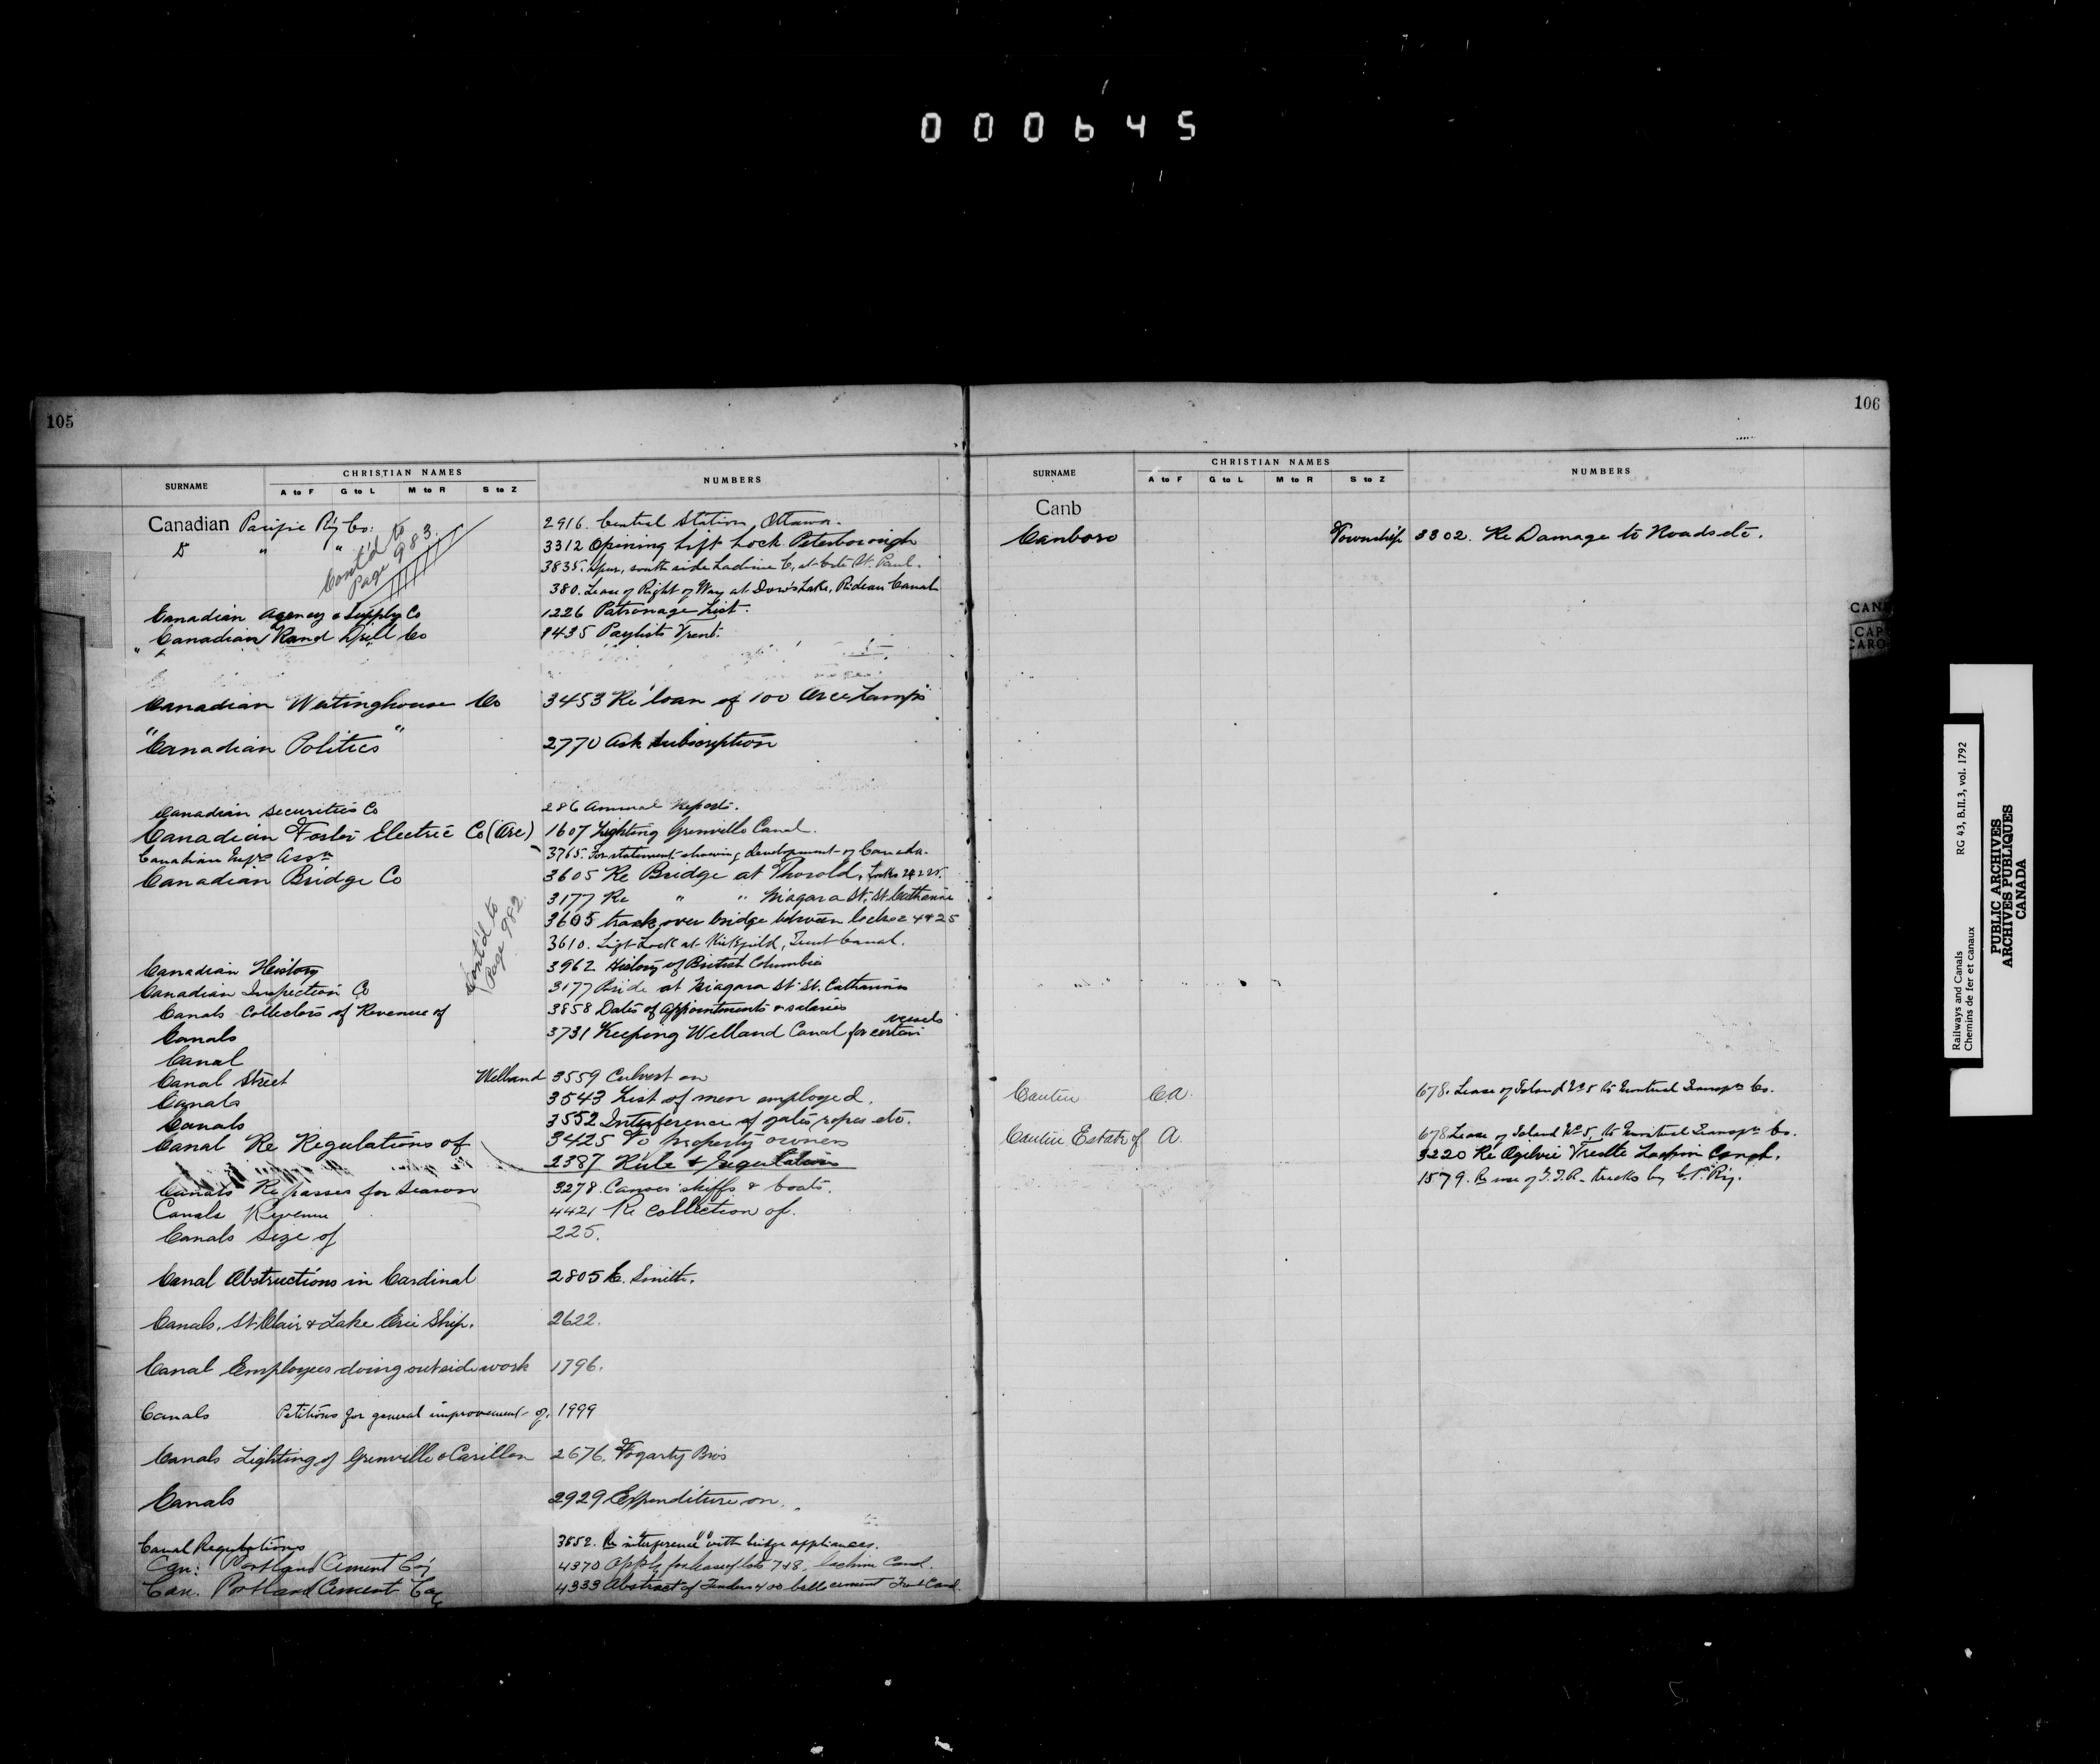 000645
105
SURNAME CHRISTIAN NAMES NUMBERS
A to F G to L M to R S to Z
Canadian Pacific Ry Co: 2916. Central Station, Ottawa.
Do " " 3312 Opening Lift Lock Peterborough
Cont'd to Page 983.
3835. Spur, south side Lachine C. at Cote St. Paul.
380. Lease of Right of Way at Dow's Lake, Rideau Canal
Canadian Agency & Supply Co 1226 Patronage List.
" Canadian Rand Drill Co 1435 Paylists Trent.
Canadian Westinghouse Co 3453 Re loan of 100 Arc Lamps
"Canadian Politics" 2770 Ask subscription
Canadian Securities Co 286 Annual Reports.
Canadian Foster Electric Co (Arc) 1607 Lighting Grenville Canal.
Canadian Assn 3765. For statement showing development of Canada.
Canadian Bridge Co 3605 Re Bridge at Thorold, Locks 24 & 25.
3177 Re " " Niagara St. St. Catharine
3605 track over bridge between locks 24 & 25
3610. Lift Lock at Kirkfield, Trent Canal.
Cont'd to Page 982.
Canadian History 3962 History of British Columbia
Canadian Inspection Co 3177 Bride at Niagara St St. Catharines
Canals Collectors of Revenue of 3858 Dates of appointments & salaries
Canals 3731 Keeping Welland Canal for certain vessels
Canal
Canal Street Welland 3559 Culvert on
Canals 3543 List of men employed.
Canals 3552 Interference of gates, ropes etc.
Canal Re Regulations of 3425 To property owners
2387 Rule & regulations
Canals Re passes for season 3278. Canoes skiffs & boats.
Canals Revenue 4421 Re collection of.
Canals size of 225.
Canal Obstructions in Cardinal 2805 C. Smith.
Canals, St. Clair & Lake Erie Ship. 2622.
Canal Employees doing outside work 1796.
Canals Petitions for general improvement of. 1999
Canals Lighting of Grenville & Carillon 2676. Fogarty Bros
Canals 2929 Expenditure on.
Canal Regulations 3552. Re interference with bridge appliances.
Can: Portland Cement Coy 4370 Apply for lease of lots 7 & 8. Lachine Canal.
Can. Portland Cement Coy 4333 Abstract of Tenders 400 bbls cement Trent Canal.
106
SURNAME CHRISTIAN NAMES NUMBERS
A to F G to L M to R S to Z
Canb
Canboro Township 3302. Re Damage to Roads etc.
Cantin C.A. 678. Lease of Island No 5 to Montreal Transpn Co.
Cantin Estate of A. 678 Lease of Island No 5, to Montreal Transpn Co.
3220 Re Ogilvie Trestle Lachine Canal.
1579. Re use of G.T.R. tracks by C.P. Ry.
CAN
CAP
CARO
Railways and Canals RG 43, B.II.3, vol. 1792
Chemins de fer et canaux
PUBLIC ARCHIVES
ARCHIVES PUBLIQUES
CANADA